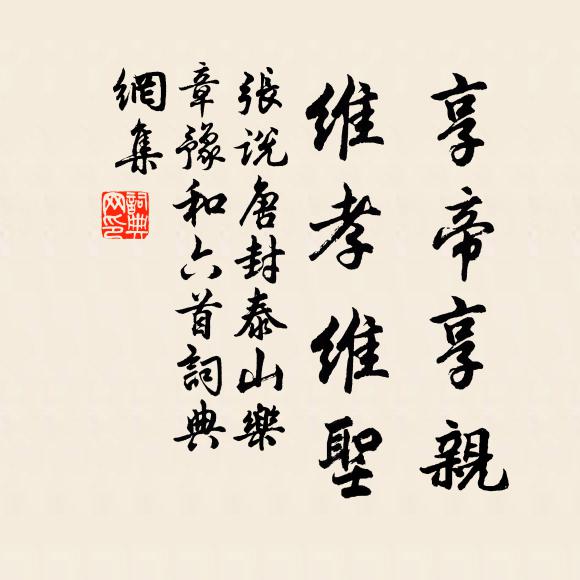 享帝享親
維孝維聖
張說唐封泰山樂
章豫和六首詞典
網集
詞典網印